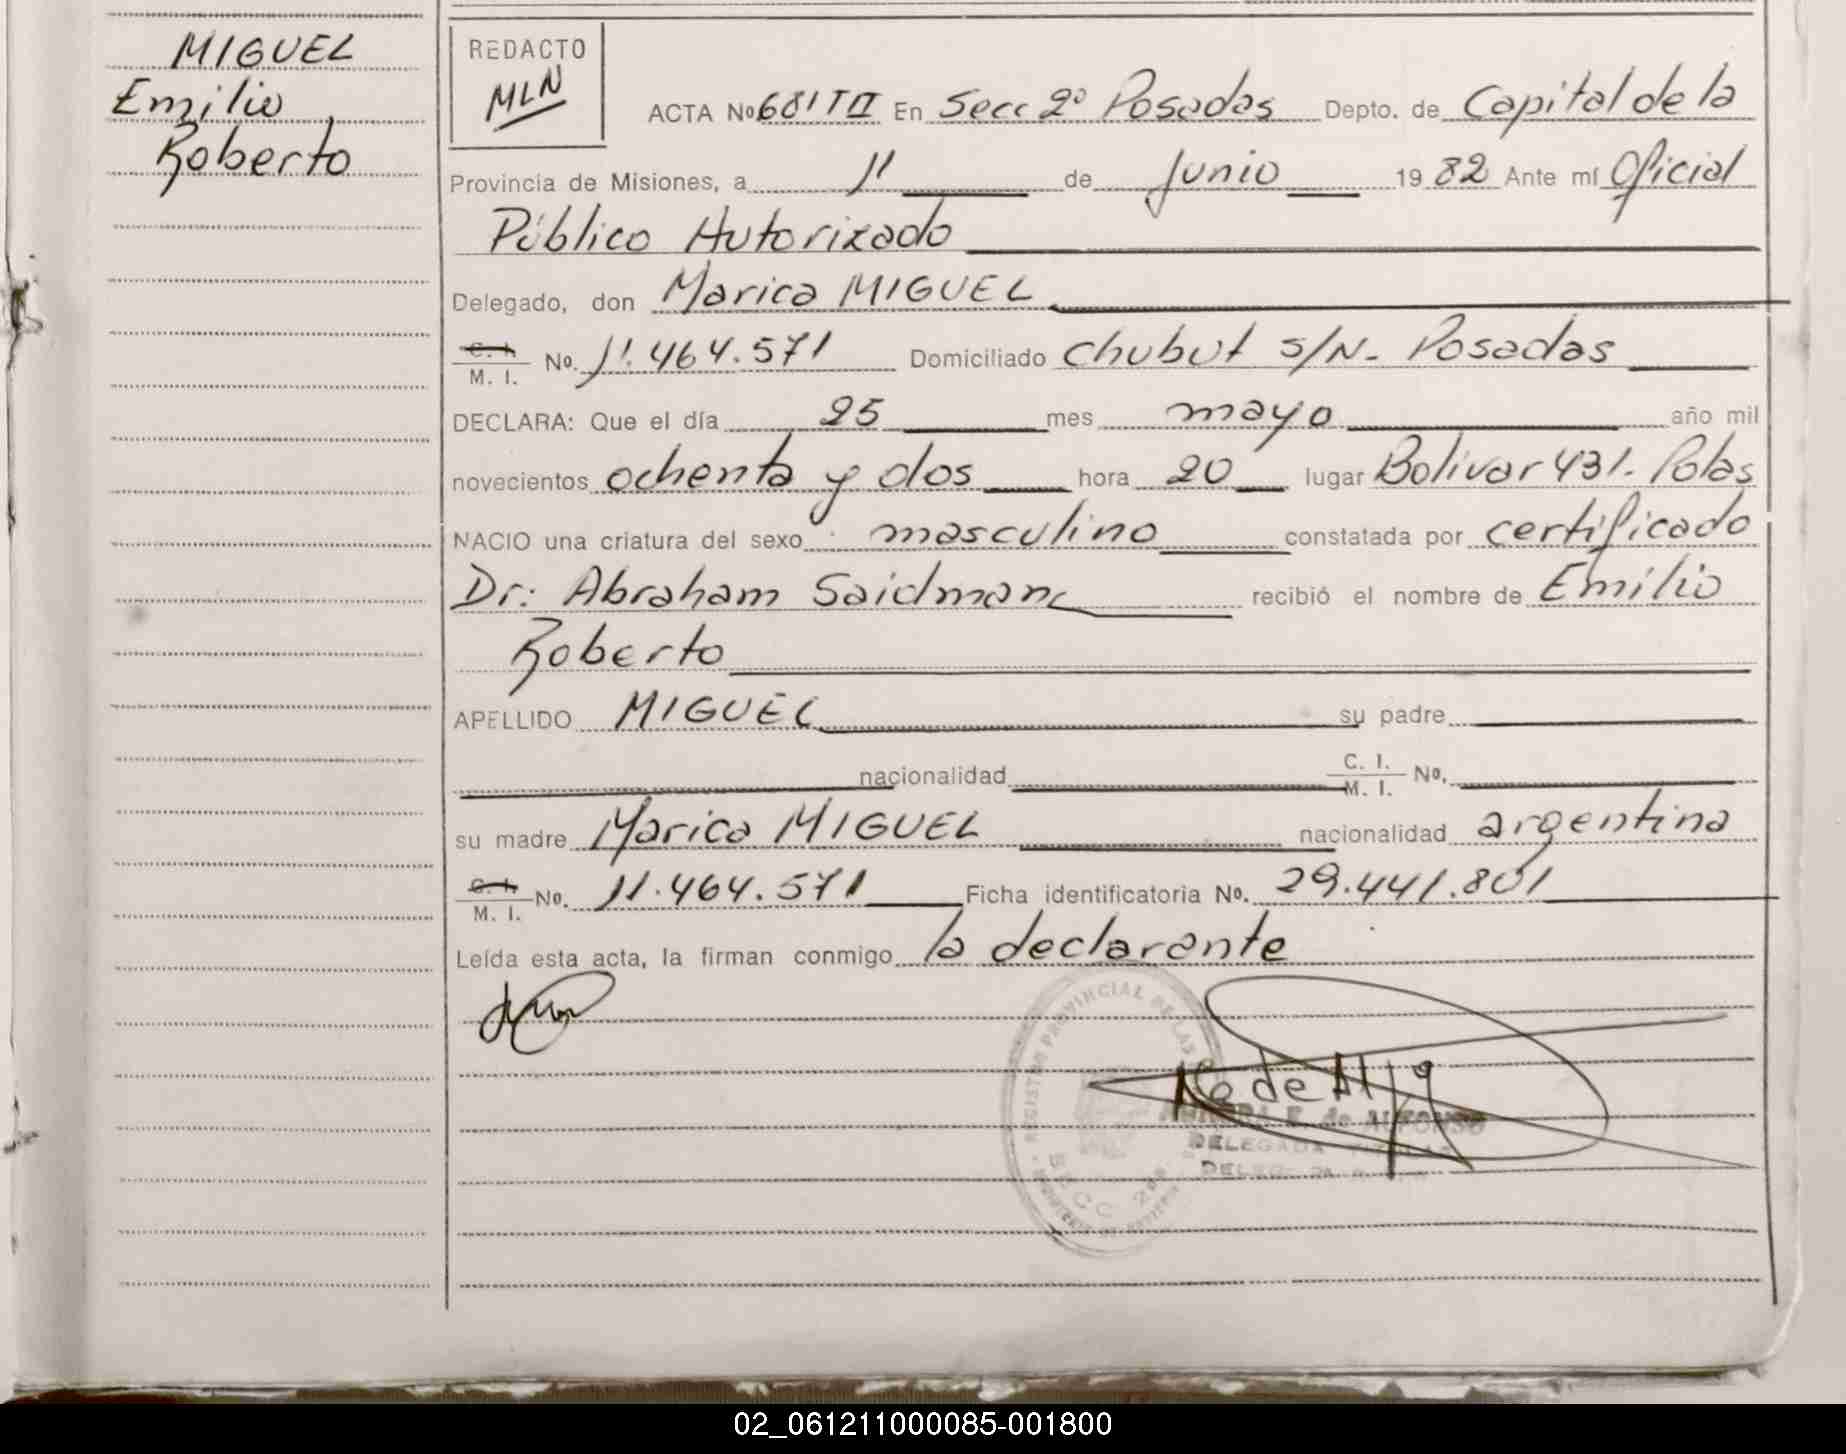 MIGUEL
Emilio
Roberto
REDACTO
MLN
ACTA No 681 T II En Secc 2º Posadas Depto. de Capital de la
Provincia de Misiones, a 11 de Junio 1982 Ante mí Oficial
Público Autorizado
Delegado, don Marica MIGUEL
C. I. M. I. No. 11.464.571 Domiciliado Chubut s/N- Posadas
DECLARA: Que el día 25 mes mayo año mil
novecientos ochenta y dos hora 20 lugar Bolivar 431. Pdas
NACIO una criatura del sexo masculino constatada por certificado
Dr: Abraham Saidman recibió el nombre de Emilio
Roberto
APELLIDO MIGUEL su padre
nacionalidad C. I. M. I. No.
su madre Marica MIGUEL nacionalidad argentina
C. I. M. I. No. 11.464.571 Ficha identificatoria No. 29.441.801
Leída esta acta, la firman conmigo la declarante
REGISTRO PROVINCIAL DE LAS
SECC 2da
E. de ALFONSO
DELEGADA TITULAR
02_061211000085-001800